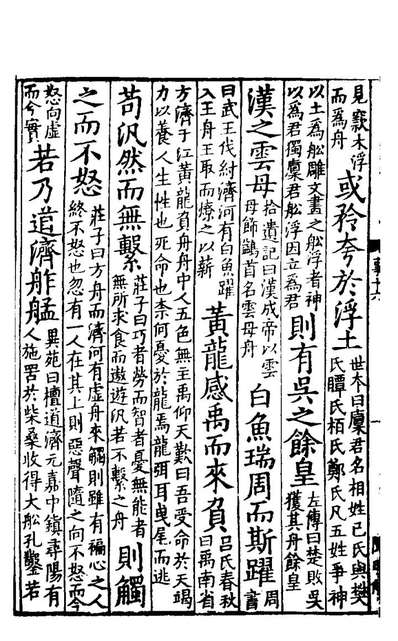 見窾木浮而為舟或矜夸於浮土世本曰廩君名相姓巳氏與樊氏瞫氏栢氏鄭氏凡五姓爭神
以土為舩雕文畫之舩浮者神以為君獨廩君舩浮因立為君則有吳之餘皇左傳曰楚敗吳獲其舟餘皇
漢之雲母拾遺記曰漢成帝以雲母飾鷁首名雲母舟白魚瑞周而斯躍周書
曰武王伐紂濟河有白魚躍入王舟王取而燎之以薪黃龍感禹而來負呂氏春秋曰禹南省
方濟于江黃龍負舟舟中人五色無主禹仰天歎曰吾受命於天竭力以養人生性也死命也柰何憂於龍焉龍弭耳曳尾而逃
苟汎然而無繫莊子曰巧者勞而智者憂無能者無所求食而遨遊汎若不繫之舟則觸
之而不怒莊子曰方舟而濟河有虛舟來觸則雖有褊心之人終不怒也忽有一人在其上則惡聲隨之向不怒而今
怒向虛而今實若乃道濟舴艋異苑曰檀道濟元嘉中鎮尋陽有人施罟於柴桑收得大舩孔鑿若